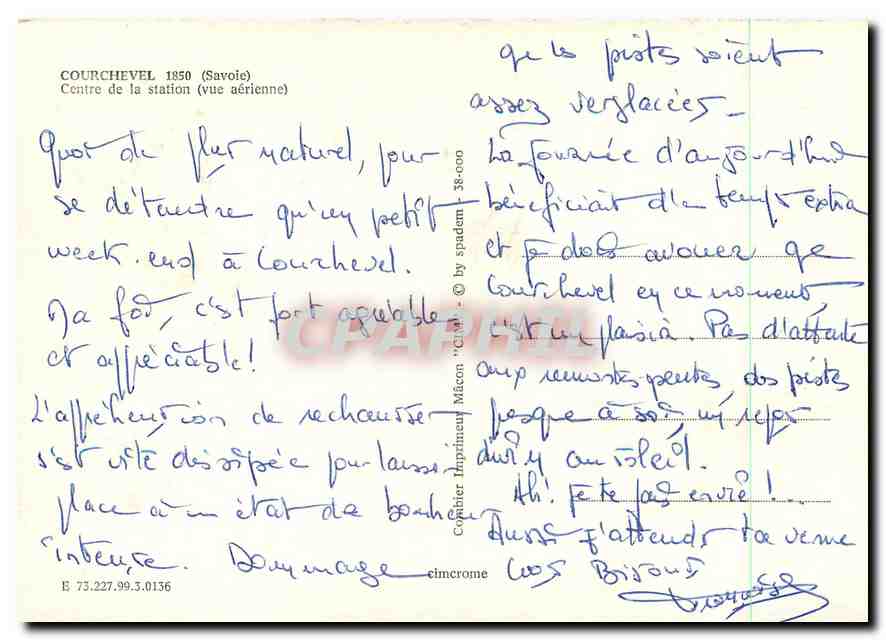 COURCHEVEL 1850 (Savoie)
Centre de la station (vue aérienne)
Quoi de plus naturel, pour
se détendre qu'un petit
week-end à Courchevel.
Ma foi, c'est fort agréable
et appréciable!
L'appréhension de rechausser
s'est vite dissipée pour laisser
place à un état de bonheur
intense. Dommage
E 73.227.99.3.0136
cimcrome
Combier Imprimeur Mâcon "CIM" - © by spadem - 38-000
que les pistes soient
assez verglacées_
La journée d'aujourd'hui
bénéficiait d'un temps extra
et je dois avouer que
Courchevel en ce moment,
c'est un plaisir. Pas d'attente
aux remontes pentes, des pistes
presque à soi, un repas
divin au soleil.
Ah! Je te fais envie!...
Aussi j'attends ta venue
Gros Bisous
CPAPHIL